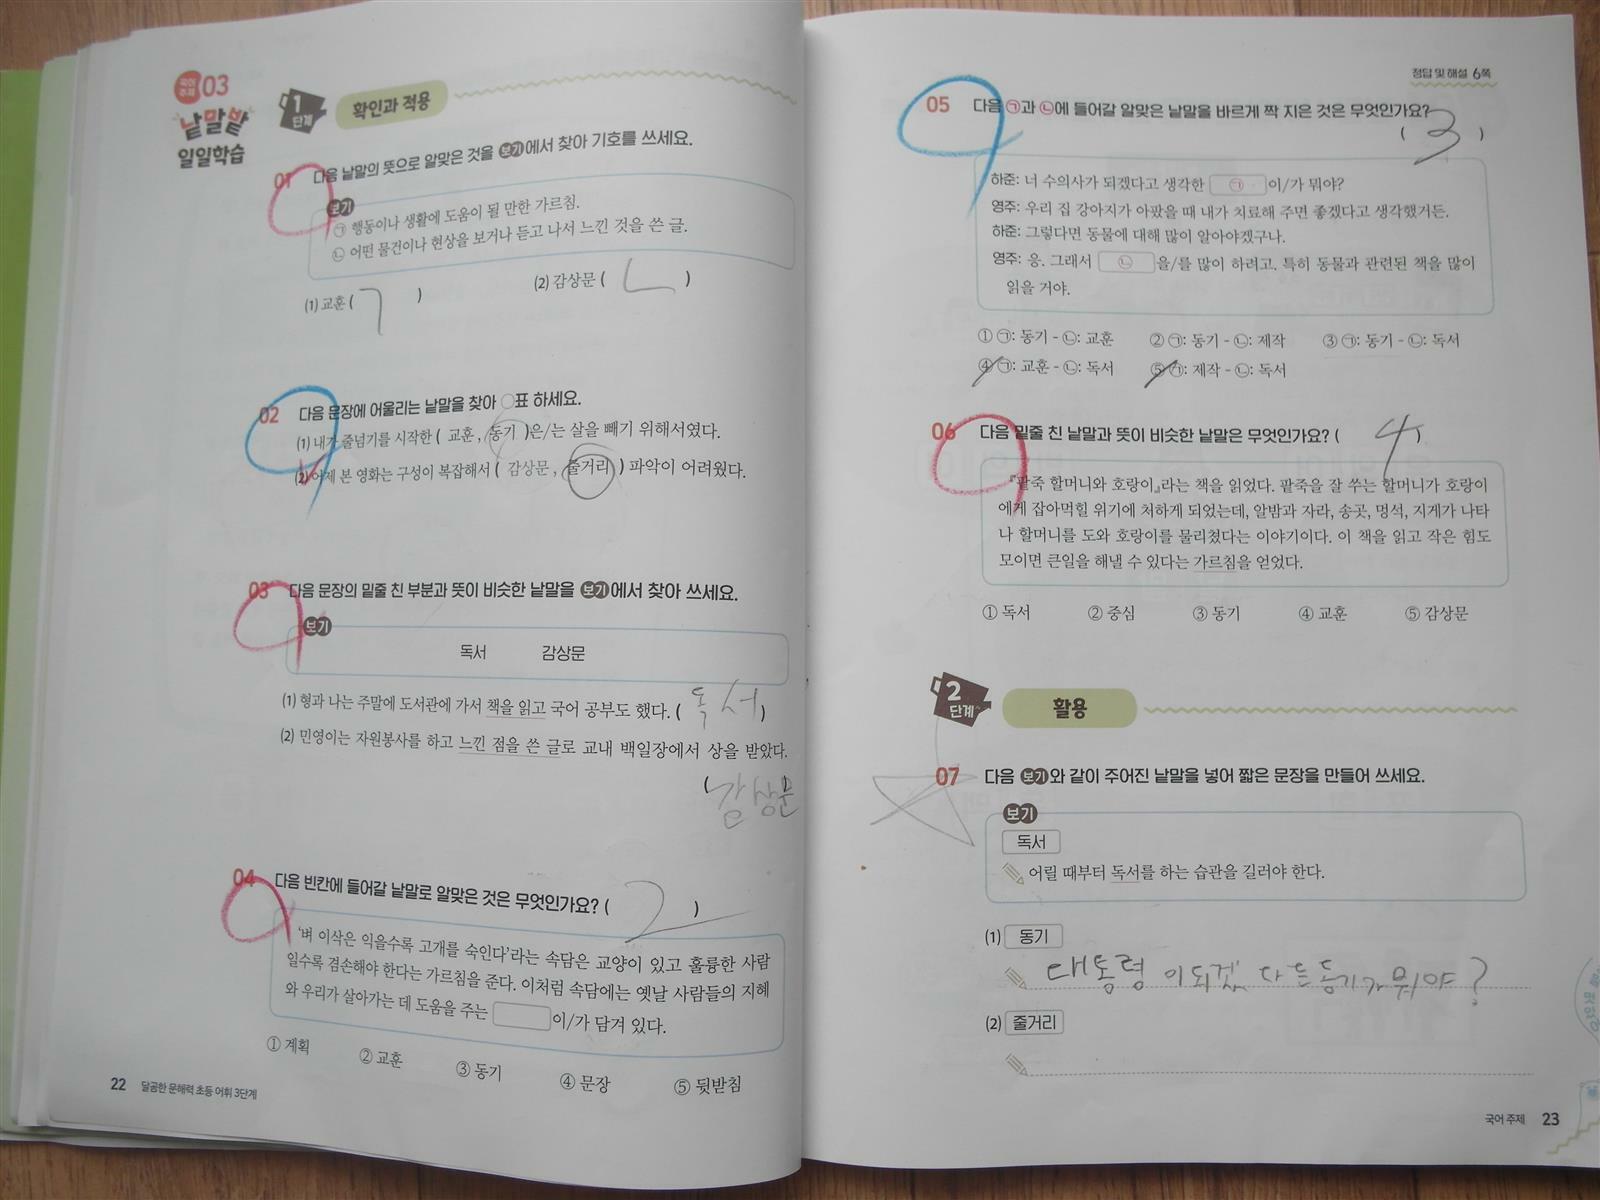 국어 주제 03
낱말밭
일일학습
1단계 확인과 적용
01 다음 낱말의 뜻으로 알맞은 것을 보기에서 찾아 기호를 쓰세요.
보기
㉠ 행동이나 생활에 도움이 될 만한 가르침.
㉡ 어떤 물건이나 현상을 보거나 듣고 나서 느낀 것을 쓴 글.
(1) 교훈 ( ㄱ ) (2) 감상문 ( ㄴ )
02 다음 문장에 어울리는 낱말을 찾아 ○표 하세요.
(1) 내가 줄넘기를 시작한 ( 교훈 , 동기 )은/는 살을 빼기 위해서였다.
(2) 어제 본 영화는 구성이 복잡해서 ( 감상문 , 줄거리 ) 파악이 어려웠다.
03 다음 문장의 밑줄 친 부분과 뜻이 비슷한 낱말을 보기에서 찾아 쓰세요.
보기
독서 감상문
(1) 형과 나는 주말에 도서관에 가서 책을 읽고 국어 공부도 했다. ( 독서 )
(2) 민영이는 자원봉사를 하고 느낀 점을 쓴 글로 교내 백일장에서 상을 받았다.
( 감상문
04 다음 빈칸에 들어갈 낱말로 알맞은 것은 무엇인가요? ( 2 )
'벼 이삭은 익을수록 고개를 숙인다'라는 속담은 교양이 있고 훌륭한 사람
일수록 겸손해야 한다는 가르침을 준다. 이처럼 속담에는 옛날 사람들의 지혜
와 우리가 살아가는 데 도움을 주는 이/가 담겨 있다.
① 계획 ② 교훈 ③ 동기 ④ 문장 ⑤ 뒷받침
22 달곰한 문해력 초등 어휘 3단계
정답 및 해설 6쪽
05 다음 ㉠과 ㉡에 들어갈 알맞은 낱말을 바르게 짝 지은 것은 무엇인가요?
( 3 )
하준: 너 수의사가 되겠다고 생각한 ㉠ 이/가 뭐야?
영주: 우리 집 강아지가 아팠을 때 내가 치료해 주면 좋겠다고 생각했거든.
하준: 그렇다면 동물에 대해 많이 알아야겠구나.
영주: 응. 그래서 ㉡ 을/를 많이 하려고. 특히 동물과 관련된 책을 많이
읽을 거야.
① ㉠: 동기 - ㉡: 교훈 ② ㉠: 동기 - ㉡: 제작 ③ ㉠: 동기 - ㉡: 독서
④ ㉠: 교훈 - ㉡: 독서 ⑤ ㉠: 제작 - ㉡: 독서
06 다음 밑줄 친 낱말과 뜻이 비슷한 낱말은 무엇인가요? ( 4 )
『팥죽 할머니와 호랑이』라는 책을 읽었다. 팥죽을 잘 쑤는 할머니가 호랑이
에게 잡아먹힐 위기에 처하게 되었는데, 알밤과 자라, 송곳, 멍석, 지게가 나타
나 할머니를 도와 호랑이를 물리쳤다는 이야기이다. 이 책을 읽고 작은 힘도
모이면 큰일을 해낼 수 있다는 가르침을 얻었다.
① 독서 ② 중심 ③ 동기 ④ 교훈 ⑤ 감상문
2단계 활용
07 다음 보기와 같이 주어진 낱말을 넣어 짧은 문장을 만들어 쓰세요.
보기
독서
어릴 때부터 독서를 하는 습관을 길러야 한다.
(1) 동기
대통령이 되겠다는 동기가 뭐야?
(2) 줄거리
국어 주제 23